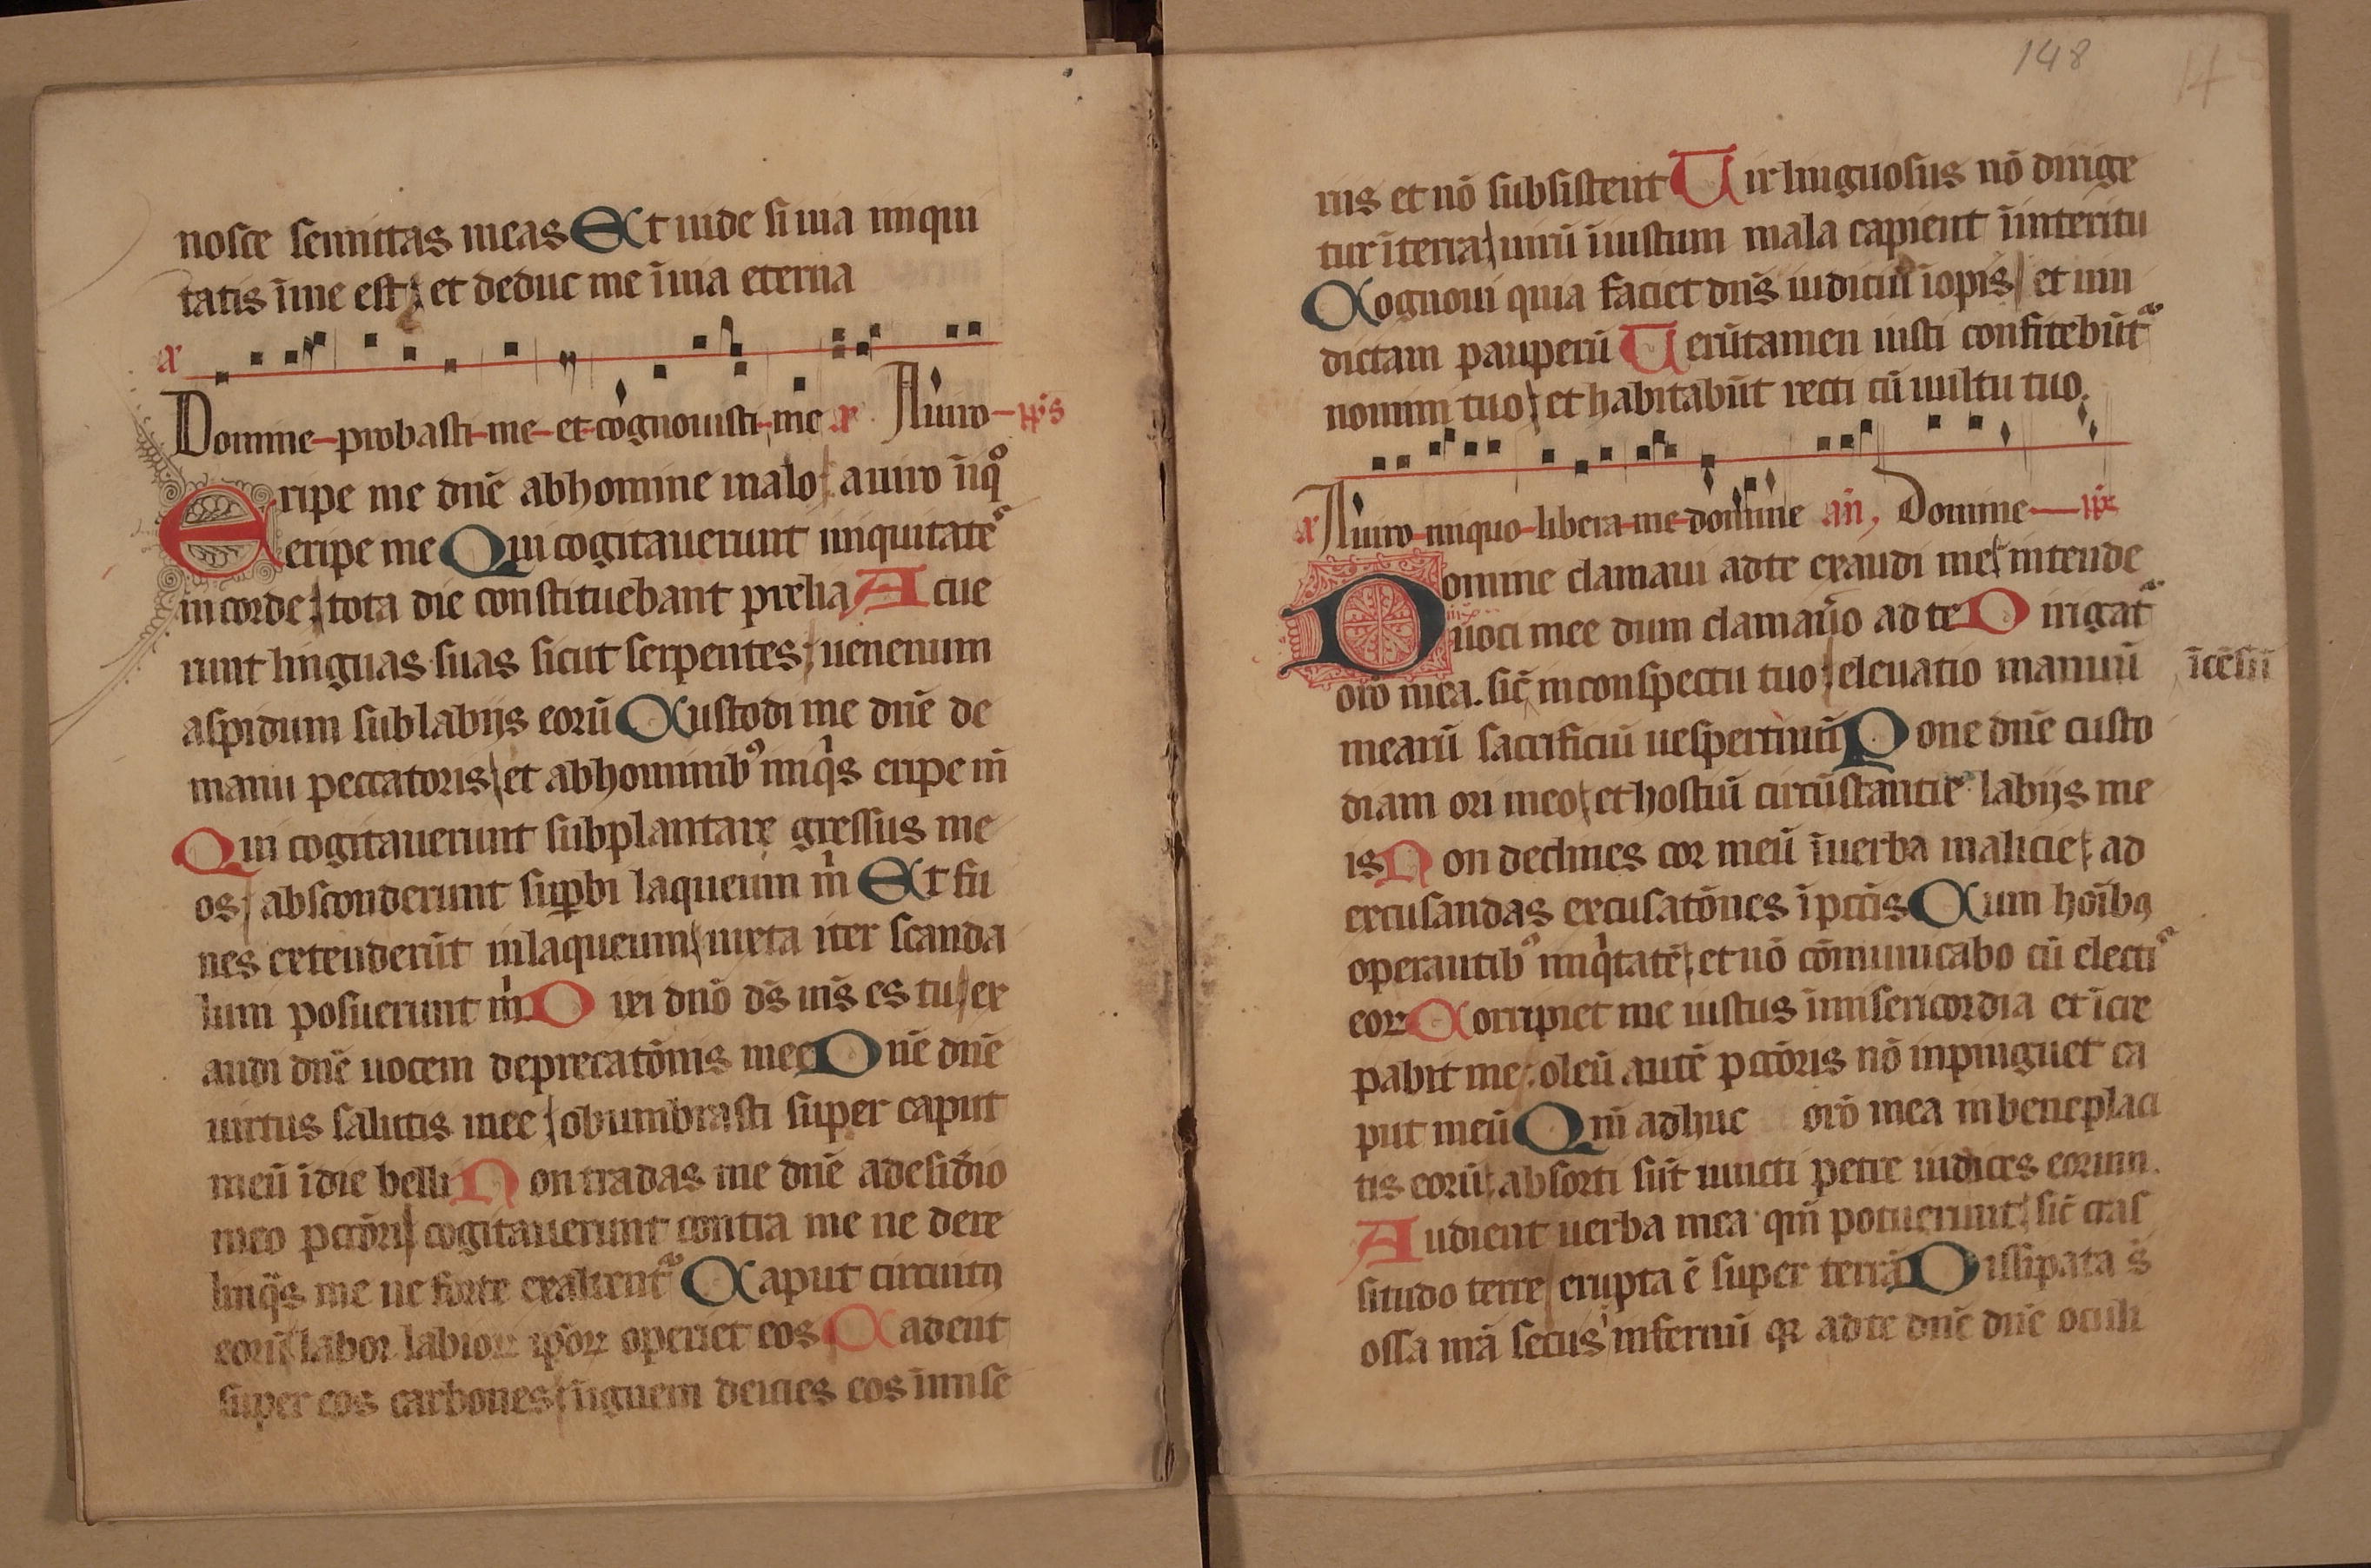 nosce semitas meas Et uide si uia iniqui
tatis ī me est; et deduc me ī uia eterna
Domine probasti me et cognouisti me a Auiro ps
Eripe me dn̄e ab homine malo; a uiro īiqo
eripe me Qui cogitauerunt iniquitatē
in corde; tota die constituebant prelia Acue
runt linguas suas sicut serpentes; uenenum
aspidum sub labijs eorū Custodi me dn̄e de
manu peccatoris; et ab hominibꝰ iniqis eripe m̄
Qui cogitauerunt subplantare gressus me
os; absconderunt suꝑbi laqueum m̄ Et fu
nes extenderūt in laqueum; iuxta iter scanda
lum posuerunt m̄ Dixi dnō ds̄ ms̄ es tu; ex
audi dn̄e uocem deprecatōnis mee Dn̄e dn̄e
uirtus salutis mee; obumbrasti super caput
meū ī die belli Non tradas me dn̄e a desidīo
meo pctōri; cogitauerunt contra me ne dere
linqs me ne forte exaltent᷑ Caput circuitꝰ
eorū; labor labioꝝ ipsoꝝ operiet eos Cadent
super eos carbones; ī ignem deicies eos ī mise
148
riis et nō subsistent Uir linguosus nō dirige
tur ī terra; uirū īiustum mala capient ī interitu
Cognoui quia faciet dn̄s iudiciū īopis; et uin
dictam pauperū Uerūtamen iusti confitebūt᷑
nomini tuo; et habitabūt recti cū uultu tuo.
a Auiro iniquo libera me domine an̄, Domine ps
Domine clamaui ad te exaudi me; intende
uoci mee dum clamauo ad te Dirigat᷑
orō mea. sic̄ in conspectu tuo; eleuatio manuū īcēsū
mearū sacrificiū uespertinū Pone dn̄e custo
diam ori meo; et hostiū circūstantie labijs me
is Non declines cor meū ī uerba malicie; ad
excusandas excusatōnes ī pctīs Cum hoībꝫ
operantibꝰ iniqitatē; et nō cōmunicabo cū electis
eoꝝ Corripiet me iustus ī misericordia et īcre
pabit me; oleū autē pctōris nō inpinguet ca
put meū Qm̄ adhuc orō mea in beneplaci
tis eorū; absorti sūt iuncti petre iudices eorum.
Audient uerba mea qm̄ potuerunt; sic̄ cras
situdo terre; erupta ē super terrā Dissipata s̄
ossa nrā secus infernū qꝛ ad te dn̄e dn̄e oculi